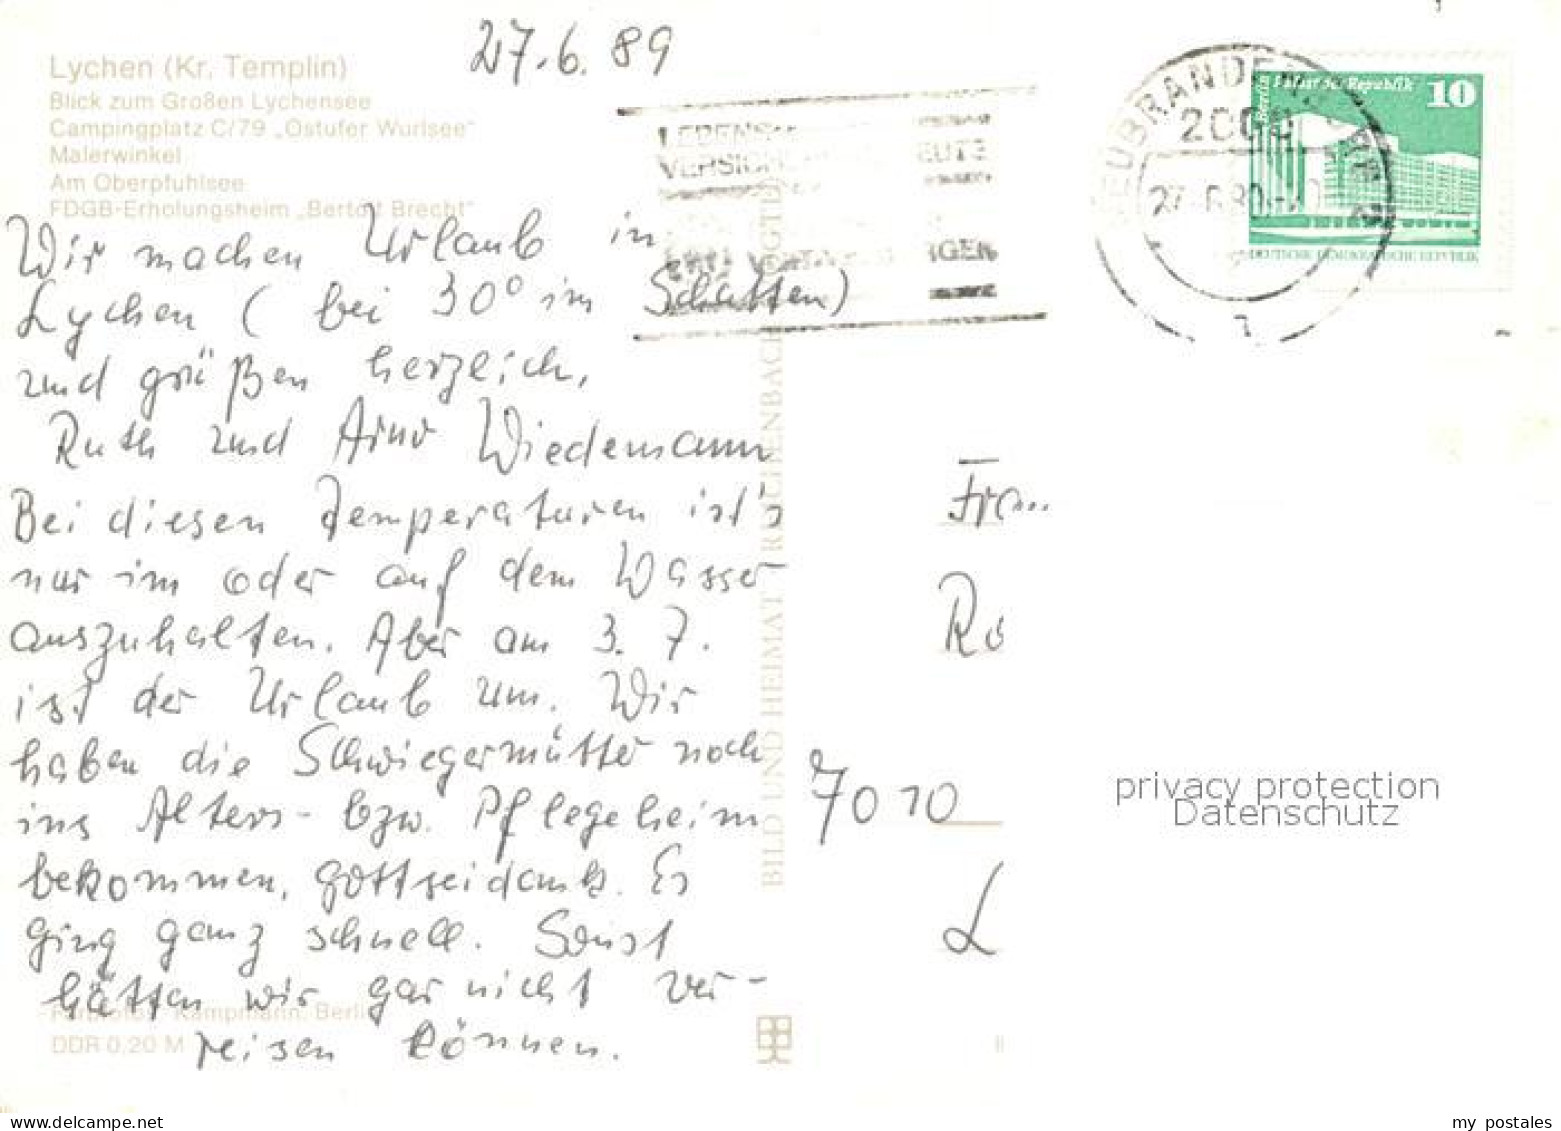 27.6.89
Lychen (Kr. Templin)
Blick zum Großen Lychensee
Campingplatz C/79 „Ostufer Wurlsee"
Malerwinkel
Am Oberpfuhlsee
FDGB-Erholungsheim „Bertolt Brecht"
Wir machen Urlaub in
Lychen (bei 30° im Schatten)
und grüßen herzlich,
Ruth und Arno Wiedemann
Bei diesen Temperaturen ist's
nur im oder auf dem Wasser
auszuhalten. Aber am 3. 7.
ist der Urlaub um. Wir
haben die Schwiegermütter noch
ins Alters- bzw. Pflegeheim
bekommen, gottseidank. Es
ging ganz schnell. Sonst
hätten wir gar nicht ver-
reisen können.
Kampmann, Berlin
DDR 0,20 M
BILD UND HEIMAT REICHENBACH
Berlin Palast der Republik 10
DEUTSCHE DEMOKRATISCHE REPUBLIK
NEUBRANDENBURG
Frau
Ro
7010
L
privacy protection
Datenschutz
my postales